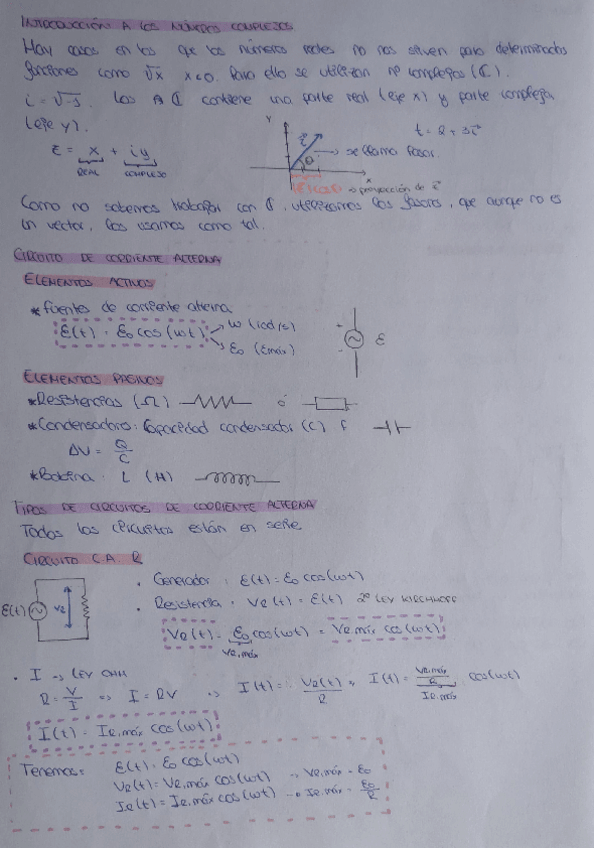 INTRODUCCIÓN A LOS NÚMEROS COMPLEJOS
Hay casos en los que los números reales no nos sirven para determinadas
funciones como √x x<0. Para ello se utilizan nº complejos (ℂ).
i = √-1. Los ℂ contiene una parte real (eje x) y parte compleja
(eje y).
z = x + iy
REAL COMPLEJO
Y
θ
→ se llama fasor.
x
→ proyección de
Como no sabemos trabajar con ℂ, utilizamos los fasores, que aunque no es
un vector, los usamos como tal.
CIRCUITO DE CORRIENTE ALTERNA
ELEMENTOS ACTIVOS
* Fuentes de corriente alterna
ε(t) = ε₀ cos(ωt) → ω (rad/s)
→ ε₀ (εmáx)
+
-
ε
ELEMENTOS PASIVOS
* Resistencias (Ω) ó
* Condensadores: Capacidad condensador (C) F
ΔV = Q/C
* Bobina: L (H)
TIPOS DE CIRCUITOS DE CORRIENTE ALTERNA
Todos los circuitos están en serie
CIRCUITO C.A. R
ε(t)
VR
· Generador: ε(t) = ε₀ cos(ωt)
· Resistencia: VR(t) = ε(t) 2º LEY KIRCHHOFF
VR(t) = ε₀ cos(ωt) = VR.máx cos(ωt)
VR.máx
· I → LEY OHM
R = V/I => I = RV => I(t) = VR(t)/R => I(t) = VR.máx/R cos(ωt)
IR.máx
I(t) = IR.máx cos(ωt)
Tenemos: ε(t) = ε₀ cos(ωt)
VR(t) = VR.máx cos(ωt) → VR.máx = ε₀
IR(t) = IR.máx cos(ωt) → IR.máx = ε₀/R